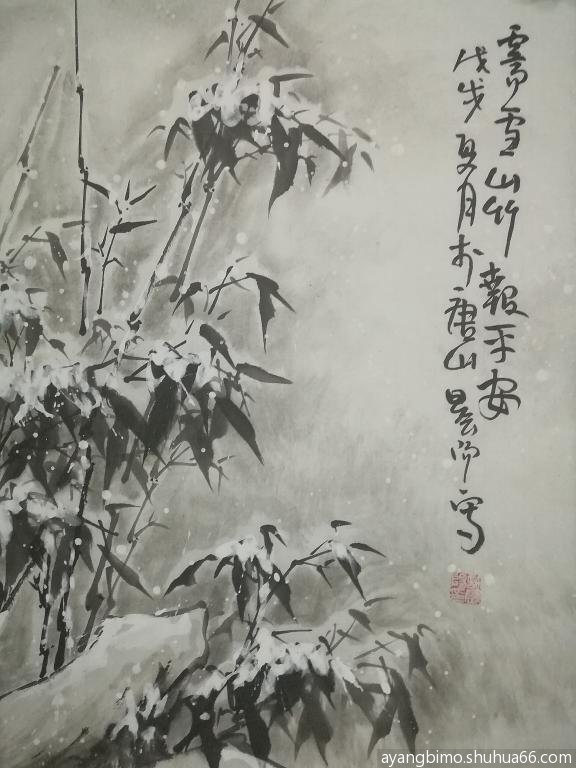 霽雪山竹報平安
戊戌夏月於唐山昙写
ayangbimo.shuhua66.com